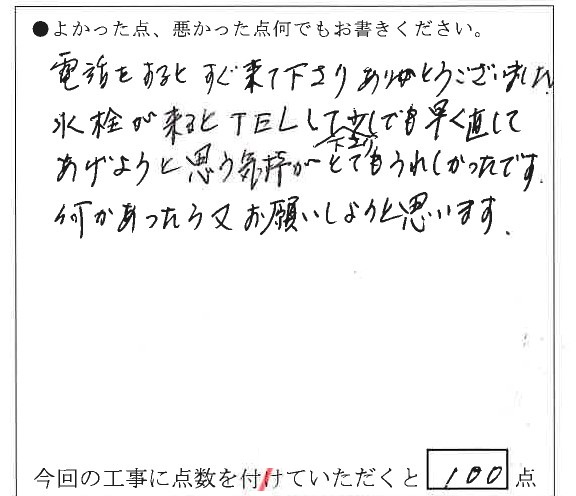 ●よかった点、悪かった点何でもお書きください。
電話をするとすぐ来て下さりありがとうございました
水栓が来るとTELして下さり少しでも早く直して
あげようと思う気持がとてもうれしかったです.
何かあったら又お願いしようと思います.
今回の工事に点数を付けていただくと 100 点